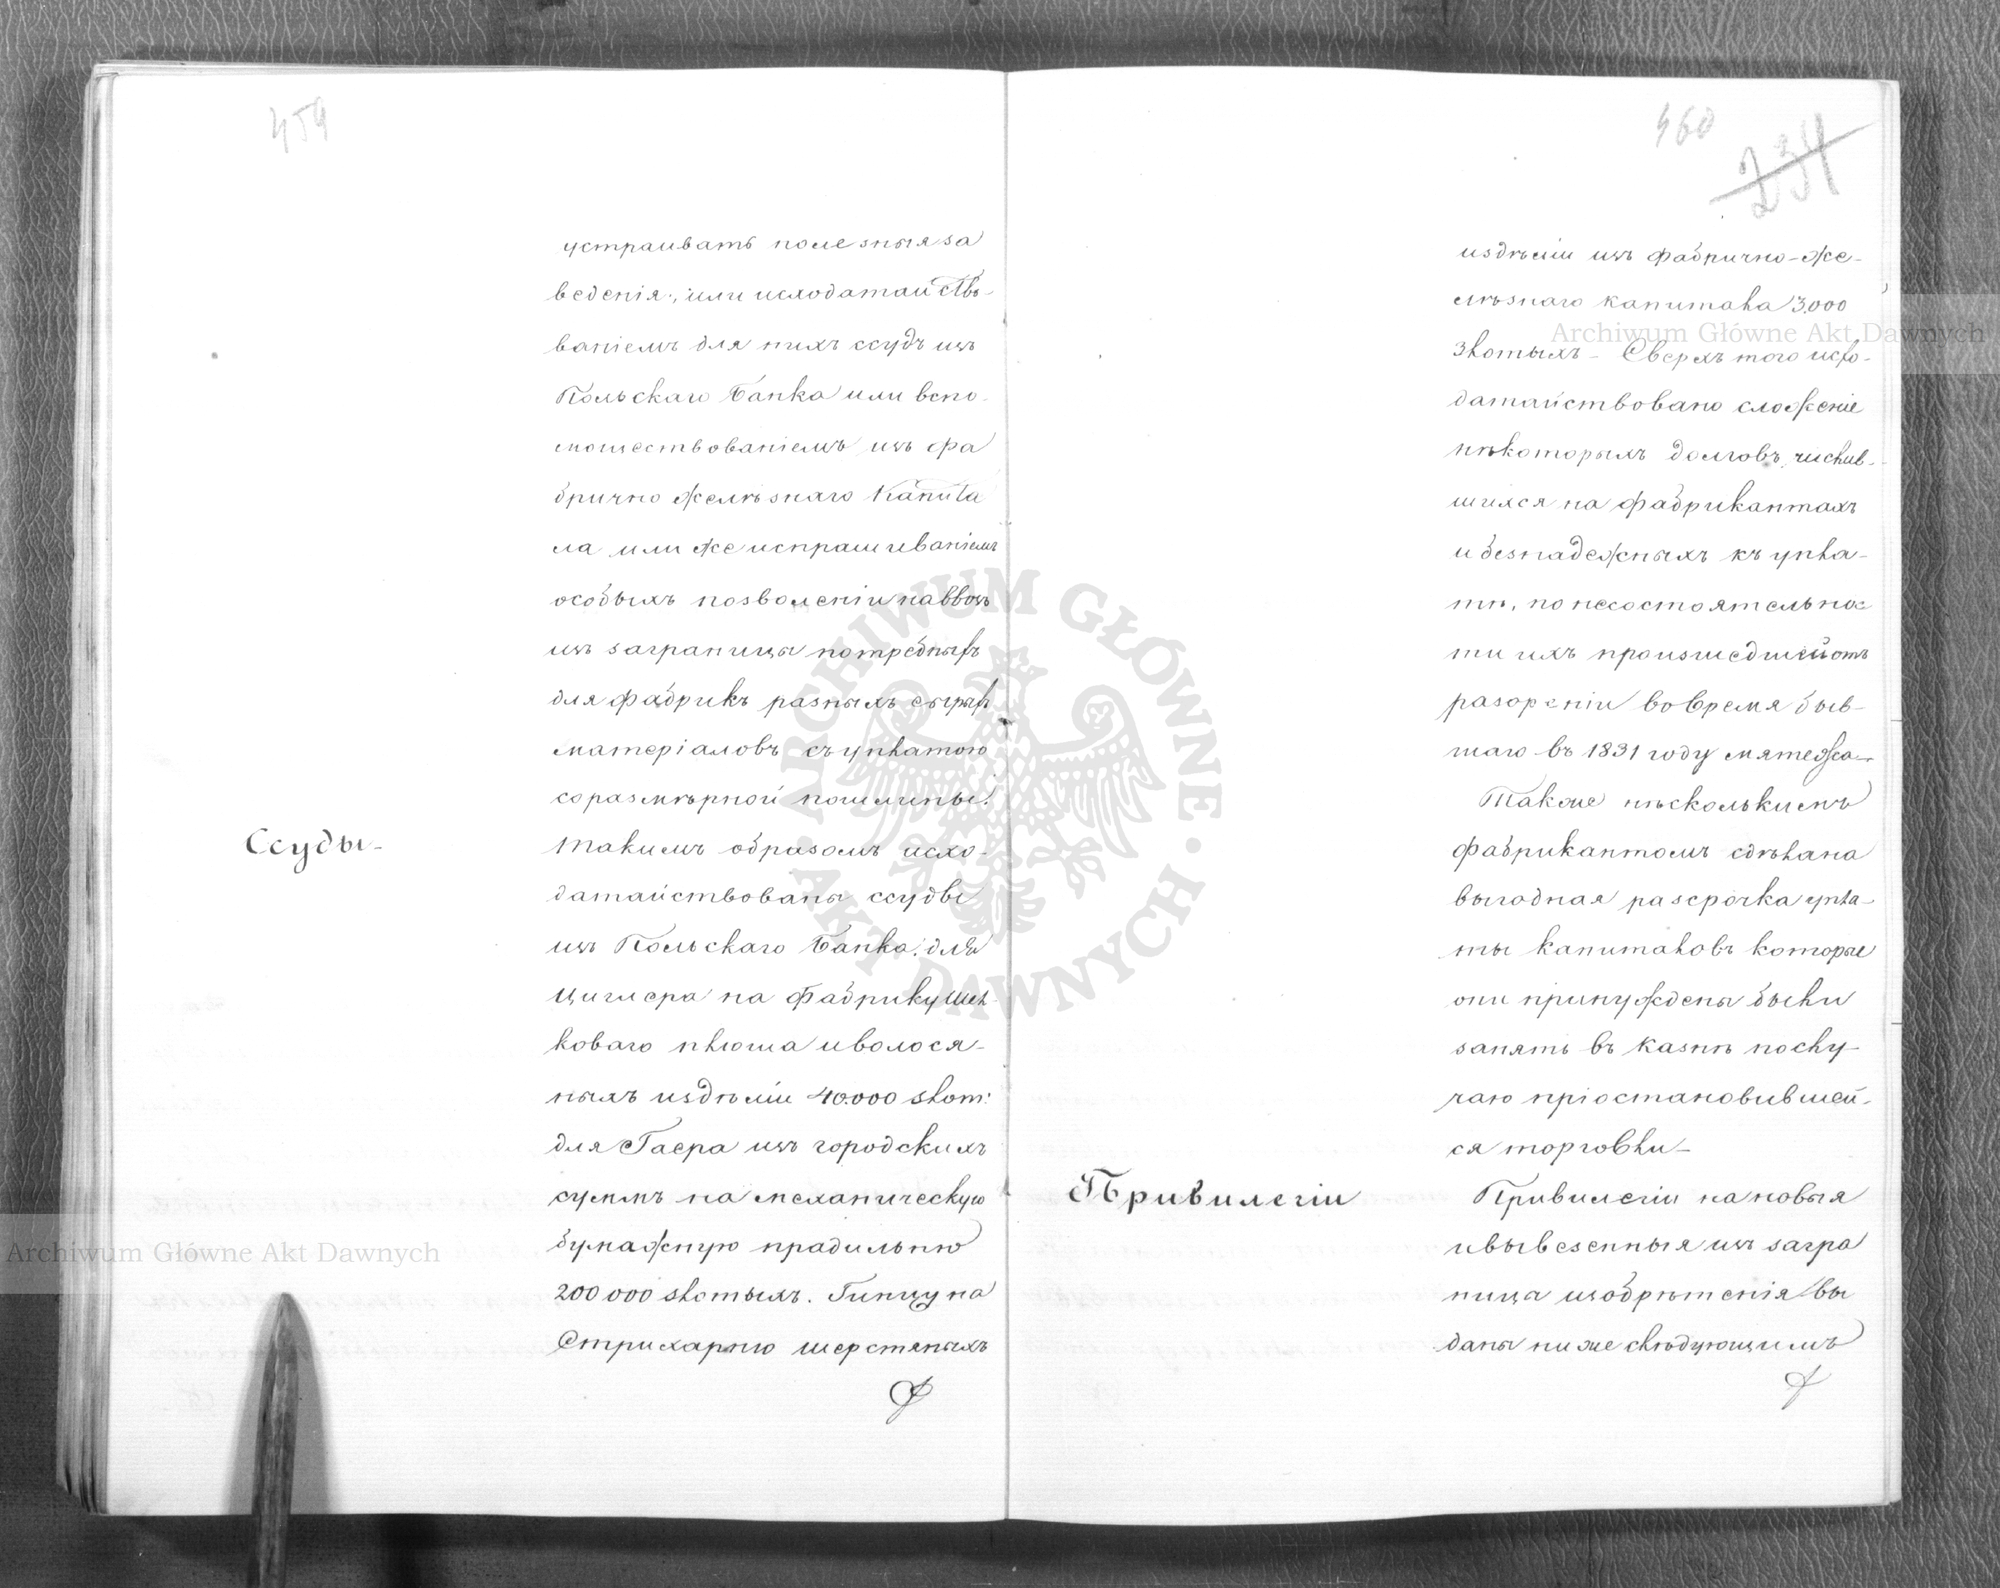 459
устраивать полезныя за
веденія, или исходатайство-
ваніемъ для нихъ ссудъ изъ
Польскаго Банка или вспо-
моществованіемъ изъ фа
брично желѣзнаго капита
ла или же испрашиваніемъ
особыхъ позволеніи на ввозъ
изъ заграницы потребныхъ
для фабрикъ разныхъ сырыхъ
матеріаловъ съ уплатою
соразмѣрной пошлины.
Ссуды-
Такимъ образомъ исхо-
датайствованы ссуды
изъ Польскаго Банка: для
Циглера на фабрику шел-
коваго плюша и волося-
ныхъ издѣліи 40.000 злот:
для Гаера изъ городскихъ
суммъ на механическую
бумажную прядильню
200 000 злотыхъ. Гинцу на
Стрихарню шерстяныхъ
460
234
издѣліи изъ фабрично-же-
лѣзнаго капитала 3.000
злотыхъ - Сверхъ того исхо-
датайствовано сложеніе
нѣкоторыхъ долговъ, числив-
шихся на фабрикантахъ
и безнадежныхъ къ упла-
тѣ, по несостоятельнос-
ти ихъ происшедшей отъ
разореніи во время быв-
шаго въ 1831 году мятежа-
Также нѣсколькимъ
фабрикантомъ сдѣлана
выгодная разсрочка упла-
ты капиталовъ которые
они принуждены были
занять въ казнѣ по слу-
чаю пріостановившей-
ся торговли-
Привилегіи
Привилегіи на новыя
и вывезенныя изъ загра
ница изобрѣтенія вы
даны ниже слѣдующимъ
Archiwum Główne Akt Dawnych
Archiwum Główne Akt Dawnych
ARCHIWUM GŁÓWNE AKT DAWNYCH